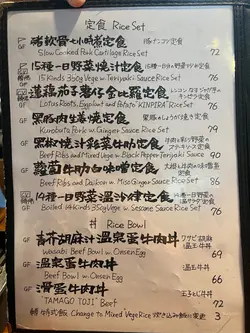 定食 Rice Set
GF 豬軟骨小時煮定食
Slow Cooked Pork Cartilage Rice Set 72
15種一日野菜燒汁定食
15 Kinds 350g Vege w. Teriyaki Sauce Rice Set 76
蓮藕茄子薯仔金比羅定食
Lotus Roots, Eggplant and Potato KINPIRA Rice Set 76
GF 黑豚肉生姜燒定食
Kurobuta Pork w. Ginger Sauce Rice Set 76
GF 黑椒燒汁彩菜牛肋定食
Beef Ribs and Mixed Vege w. Black Pepper Teriyaki Sauce 90
GF 蘿蔔牛肋白味噌定食
Beef Ribs and Daikon w. Miso Ginger Sauce Rice Set 86
14種一日野菜溫沙律定食
Boiled 14 Kinds 350g Vege w. Sesame Sauce Rice Set 76
丼 Rice Bowl
GF 青芥胡麻汁溫泉蛋牛肉丼
Wasabi Beef Bowl w. Onsen Egg 68
GF 溫泉蛋牛肉丼 温玉牛丼
Beef Bowl w. Onsen Egg 66
GF 滑蛋牛肉丼
"TAMAGO TOJI" Beef 72
轉時式飯 Change to Mixed Vege Rice 3